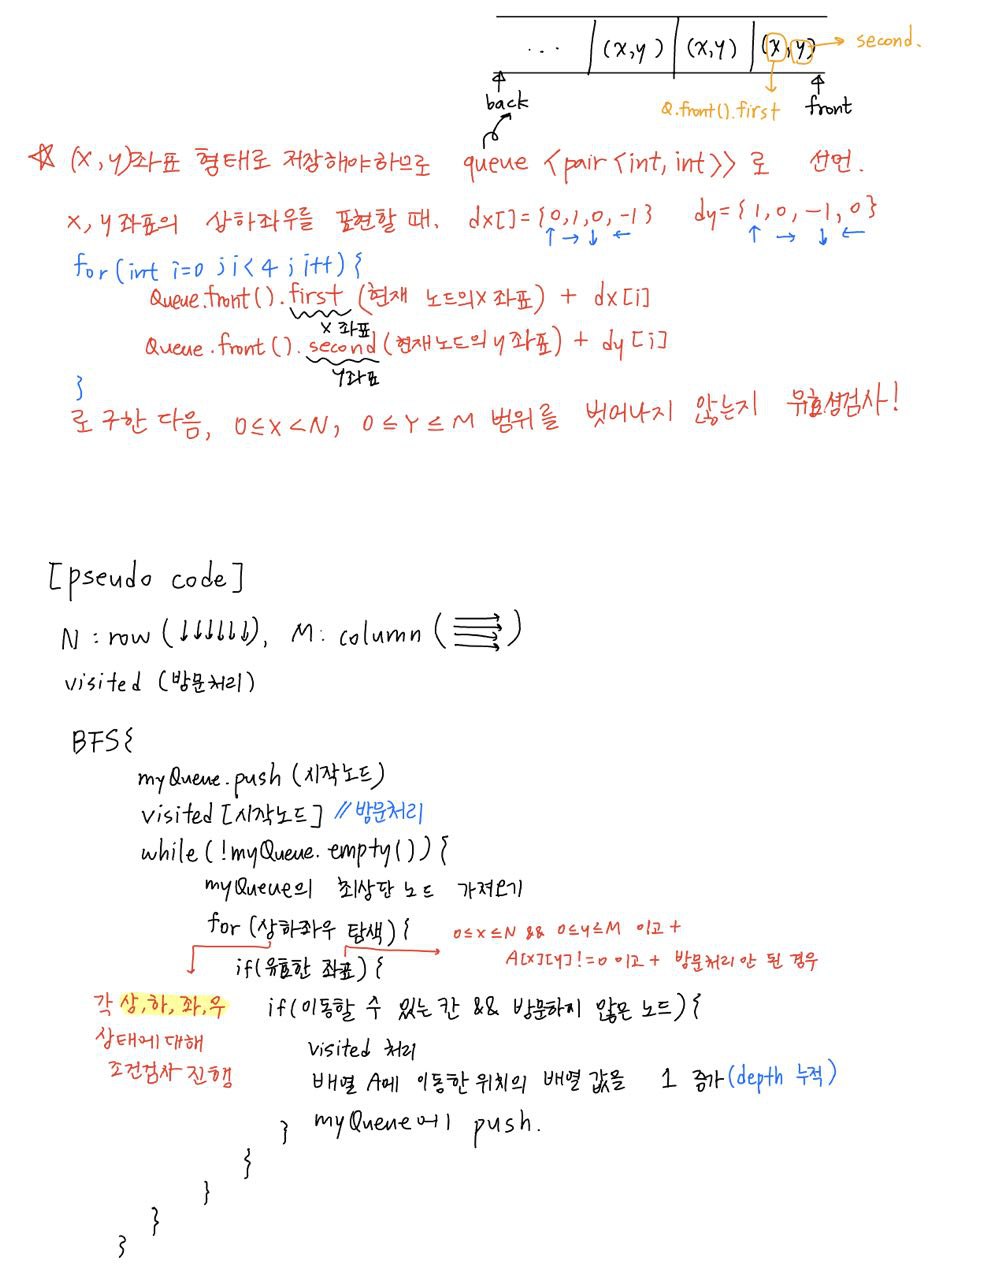 ... (x,y) (x,y) (x,y) → second.
back Q.front().first front
☆ (x,y)좌표 형태로 저장해야하므로 queue <pair<int,int>> 로 선언.
x,y좌표의 상하좌우를 표현할 때, dx[]={0,1,0,-1} dy={1,0,-1,0}
↑ → ↓ ← ↑ → ↓ ←
for(int i=0;i<4;i++){
Queue.front().first (현재 노드의x 좌표) + dx[i]
x 좌표
Queue.front().second(현재노드의 y좌표) + dy[i]
y좌표
}
로 구한 다음, 0≤x<N, 0≤Y≤M 범위를 벗어나지 않는지 유효성검사!
[pseudo code]
N : row (↓↓↓↓↓↓), M: column (→→→→)
visited (방문처리)
BFS{
myQueue.push (시작노드)
visited [시작노드] //방문처리
while(!myQueue.empty()){
myQueue의 최상단 노드 가져오기
for (상하좌우 탐색){ 0≤x≤N && 0≤y≤M 이고 +
if(유효한 좌표){ A[x][y]!=0 이고 + 방문처리 안 된 경우
각 상,하,좌,우 if(이동할 수 있는 칸 && 방문하지 않은 노드){
상태에 대해 visited 처리
조건검사 진행 배열 A에 이동한 위치의 배열 값을 1 증가(depth 누적)
} myQueue에 push.
}
}
}
}